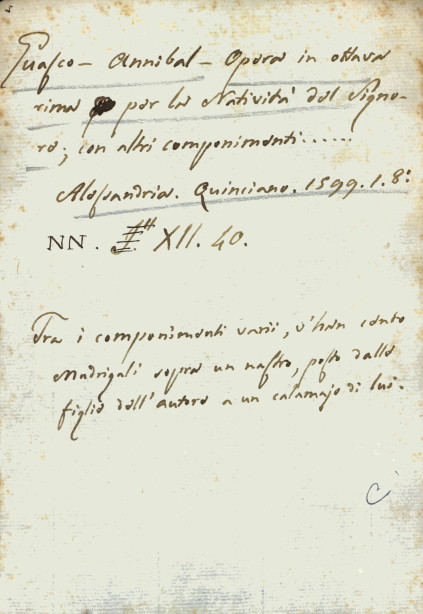 Guasco - Annibal - Opera in ottava
rima per la Natività del Signo-
re; con altri componimenti......
Alessandria. Quinciano. 1599. 1. 8:
NN. XII. 40.
Tra i componimenti varii, v'han cento
Madrigali sopra un nastro, posto dallo
figlio dell'autore a un calamajo di lui.
C